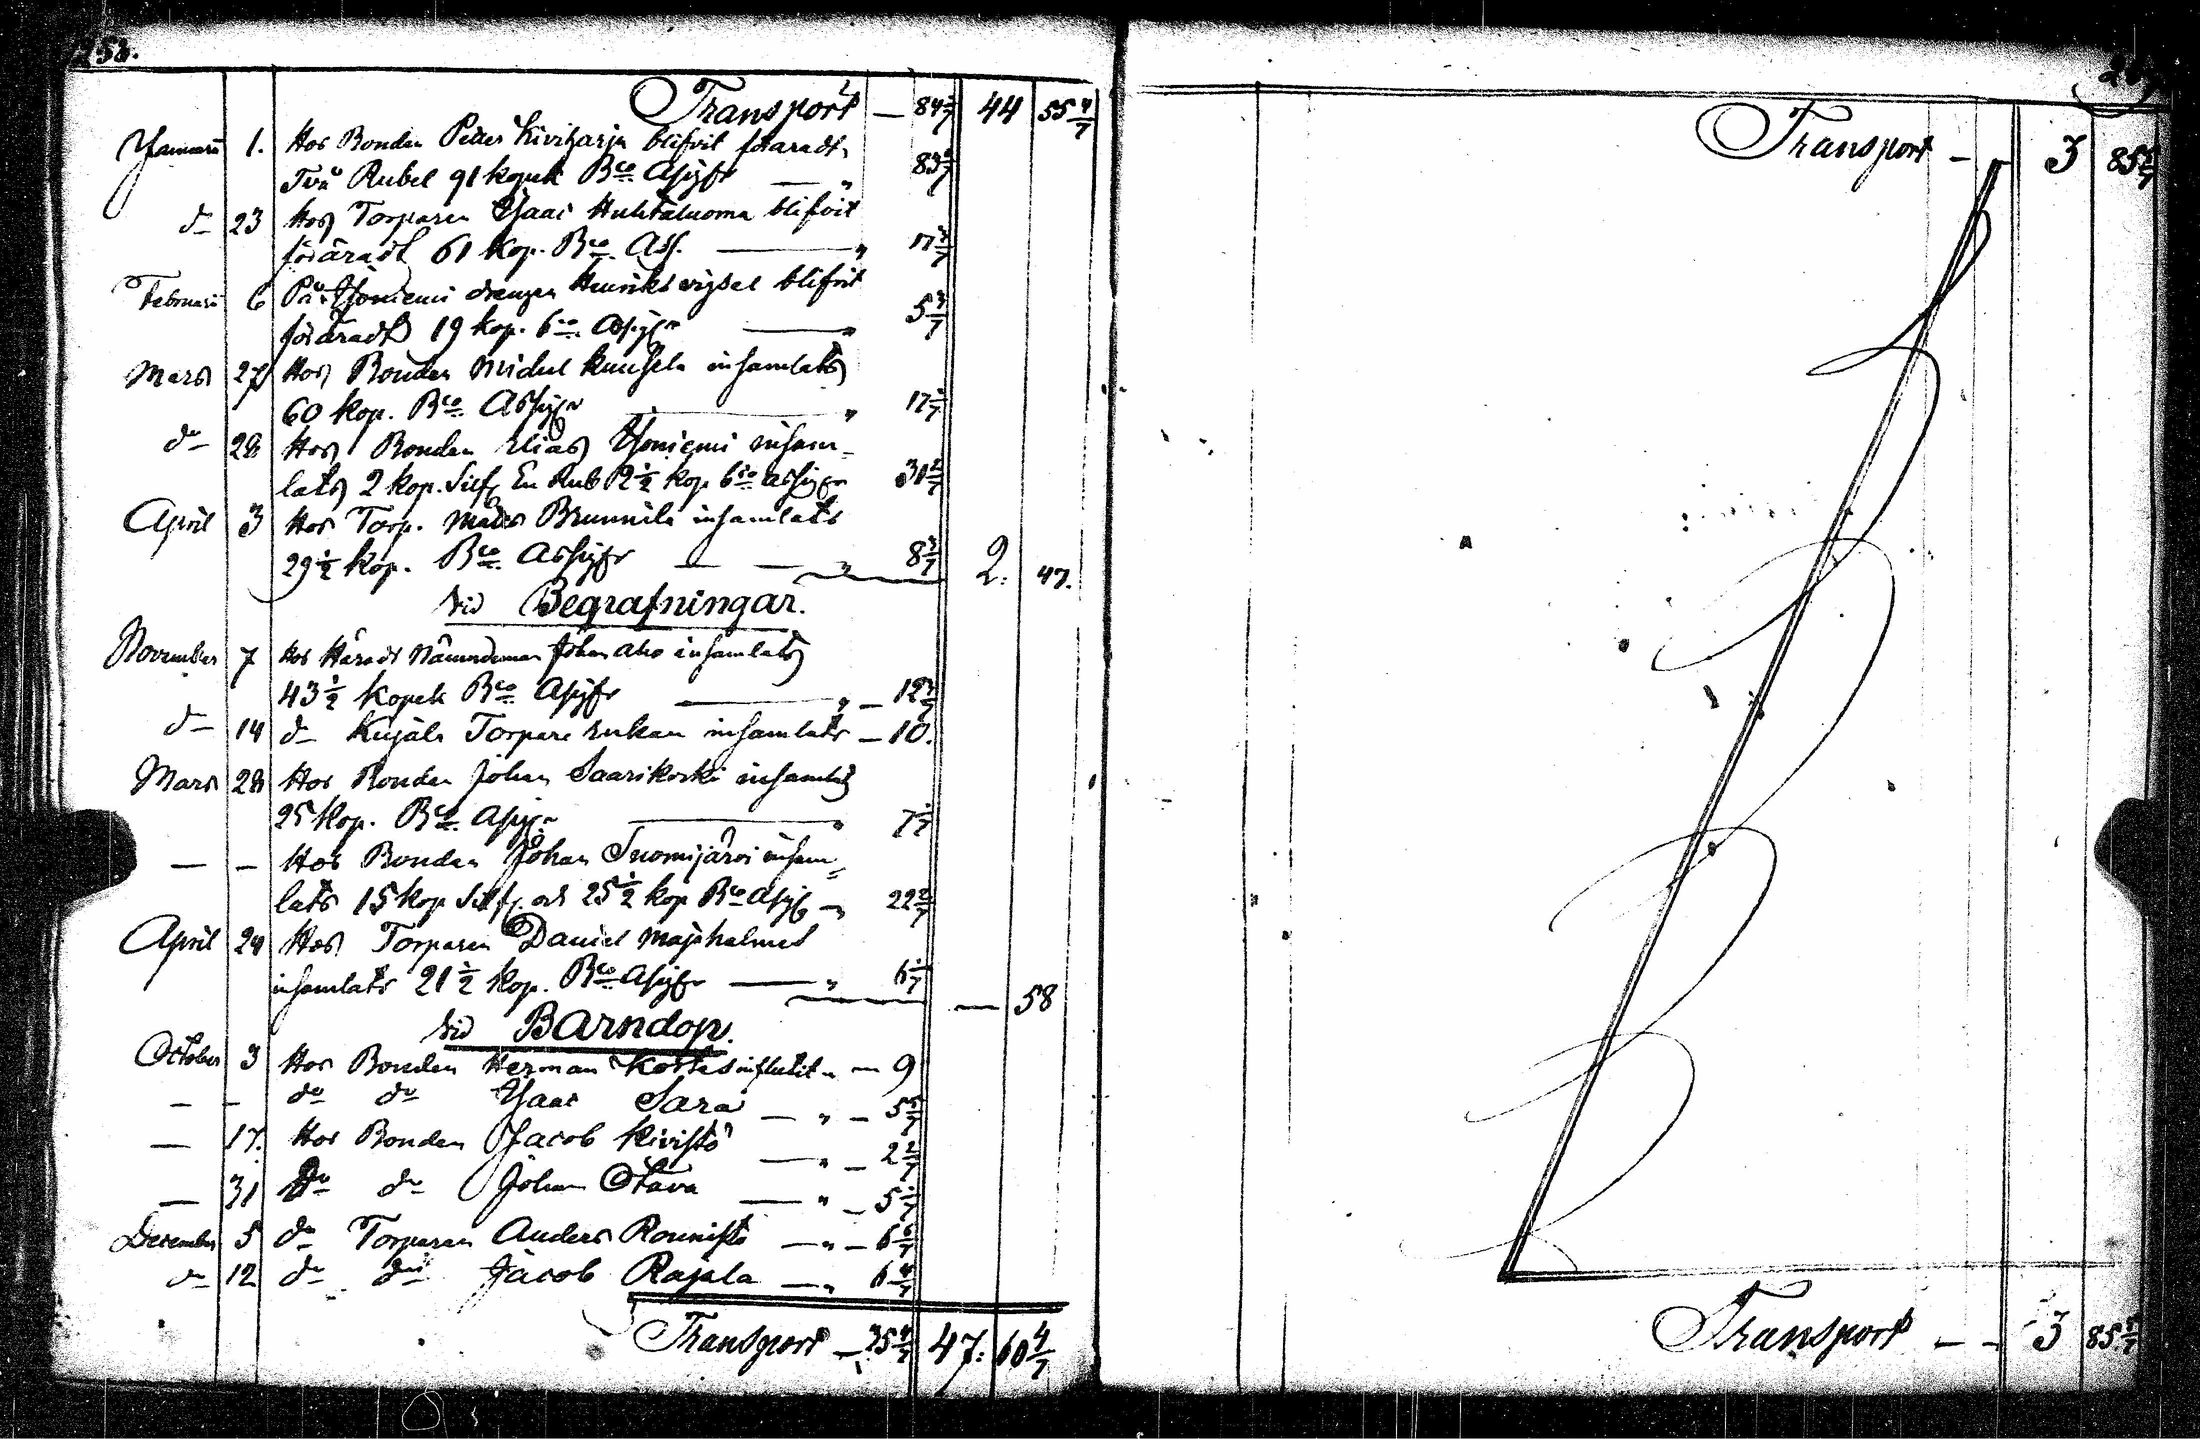 Transport — 84 2/7 44 55 4/7
Januari 1. Hos Bonden Petter Kiviharju blifvit föräradt
Två Rubel 91 kopek Bco Assign — " 83 1/7
do 23 Hos Torparen Isaac Huhtaluoma blifvit
föräradt 61 kop. Bco Ass. — " 17 3/7
Februari 6 På Isoniemi drengen Henriks vigsel blifvit
föräradt 19 kop. bco Assign — " 5 3/7
Mars 27 Hos Bonden Michel Kuusela insamlats
60 kop. Bco Assign — " 17 1/7
do 28 Hos Bonden Elias Isoniemi insam-
lats 2 kop. Silf, En Rub 2 1/2 kop bco assign 31 2/7
April 3 Hos Torp. Matts Brunnila insamlats
29 1/2 kop. Bco Assign — — " 8 3/7 2. 47.
vid Begrafningar.
November 7 Hos Härads Nämndeman Johan Aho insamlats
43 1/2 kopek Bco Assign — " — 12 3/7
do 14 do Kujala Torpare Enkan insamlats — 10.
Mars 28 Hos Bonden Johan Saarikoski insamlats
25 kop. Bco Assign — " 7 1/7
— - Hos Bonden Johan Suomijärvi insam-
lats 15 kop Silf. och 25 1/2 kop Bco Assig — 22 2/7
April 24 Hos Torparen Daniel
insamlats 21 1/2 kop. Bco Assign — " 6 1/7 — 58
vid Barndop.
October 3 Hos Bonden Herman Kortes influtit " — 9
— - do do Isaac Sara — " — 5 5/7
— 17. Hos Bonden Jacob Kivistö — " — 2 2/7
— 31 Do do Johan Otava — " — 5 1/7
December 5 do Torparen Anders Rounisto — " — 6 6/7
do 12 do do Jacob Rajala — " 6 4/7
Transport — 35 4/7 47: 60 4/7
Transport — 3 85 5/7
Transport — — 3 85 5/7